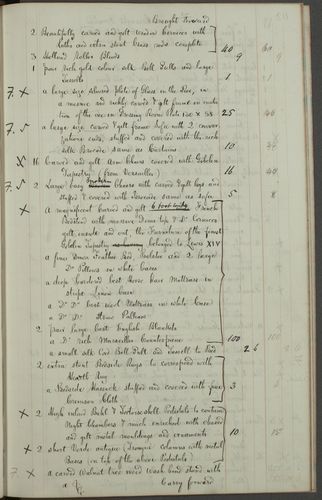 Brought Forward
2 Beautifully carved and gilt window Cornices with
laths and extra stout brass ends complete 40 60
3 Holland Roller Blinds 9 9
1 pair rich gold colour silk Bell Pulls and large
Tassels 1
7. x a large size silvered plate of Glass in the
a massive and richly carved & gilt frame
of the Dressing Room Plate 120 x 58 25 40
7. 5 a large size carved & gilt frame Sofa with 2
ends, stuffed and covered with the rich
silk Brocade same as Curtains 10
16 Carved and gilt Arm Chairs covered with Gobelin
Tapestry (from Versailles) 16
7. 5 2 Large easy Chairs with carved & gilt legs and
stuffed & covered with Brocade same as sofa 5 8
x a magnificent carved and gilt French
Bedstead with massive Dome top &
gilt inside and out, the Furniture of the finest
Gobelin Tapestry belonged to Louis XIV
a fine Down Feather Bed, Bolster and 2 large
Do Pillows in white cases
a deep bordered best Horse hair Mattrass in
stripe Linen case
a Do Do best wool Mattrass in white case
a Do Do Straw Palliass
2 pair large best English Blankets
a Do rich Marseilles Counterpane 100 100
a small silk Cord Bell Pull and Tassell to Bed 2 6
2 extra stout Bedside Rugs to correspond with
Hearth Rug
a Bedside Hassock stuffed and covered with fine
Crimson Cloth 3
x 2 Buhl & Tortoiseshell Pedestals to contain
Night Chambers & much enriched with chased
and gilt metal mouldings and ornaments 10 15
x 2 short Verde antique Columns with metal
Bases (on top of the above Pedestals)
7 x a carved Walnut tree wood Wash hand stand with
a
Carry forward